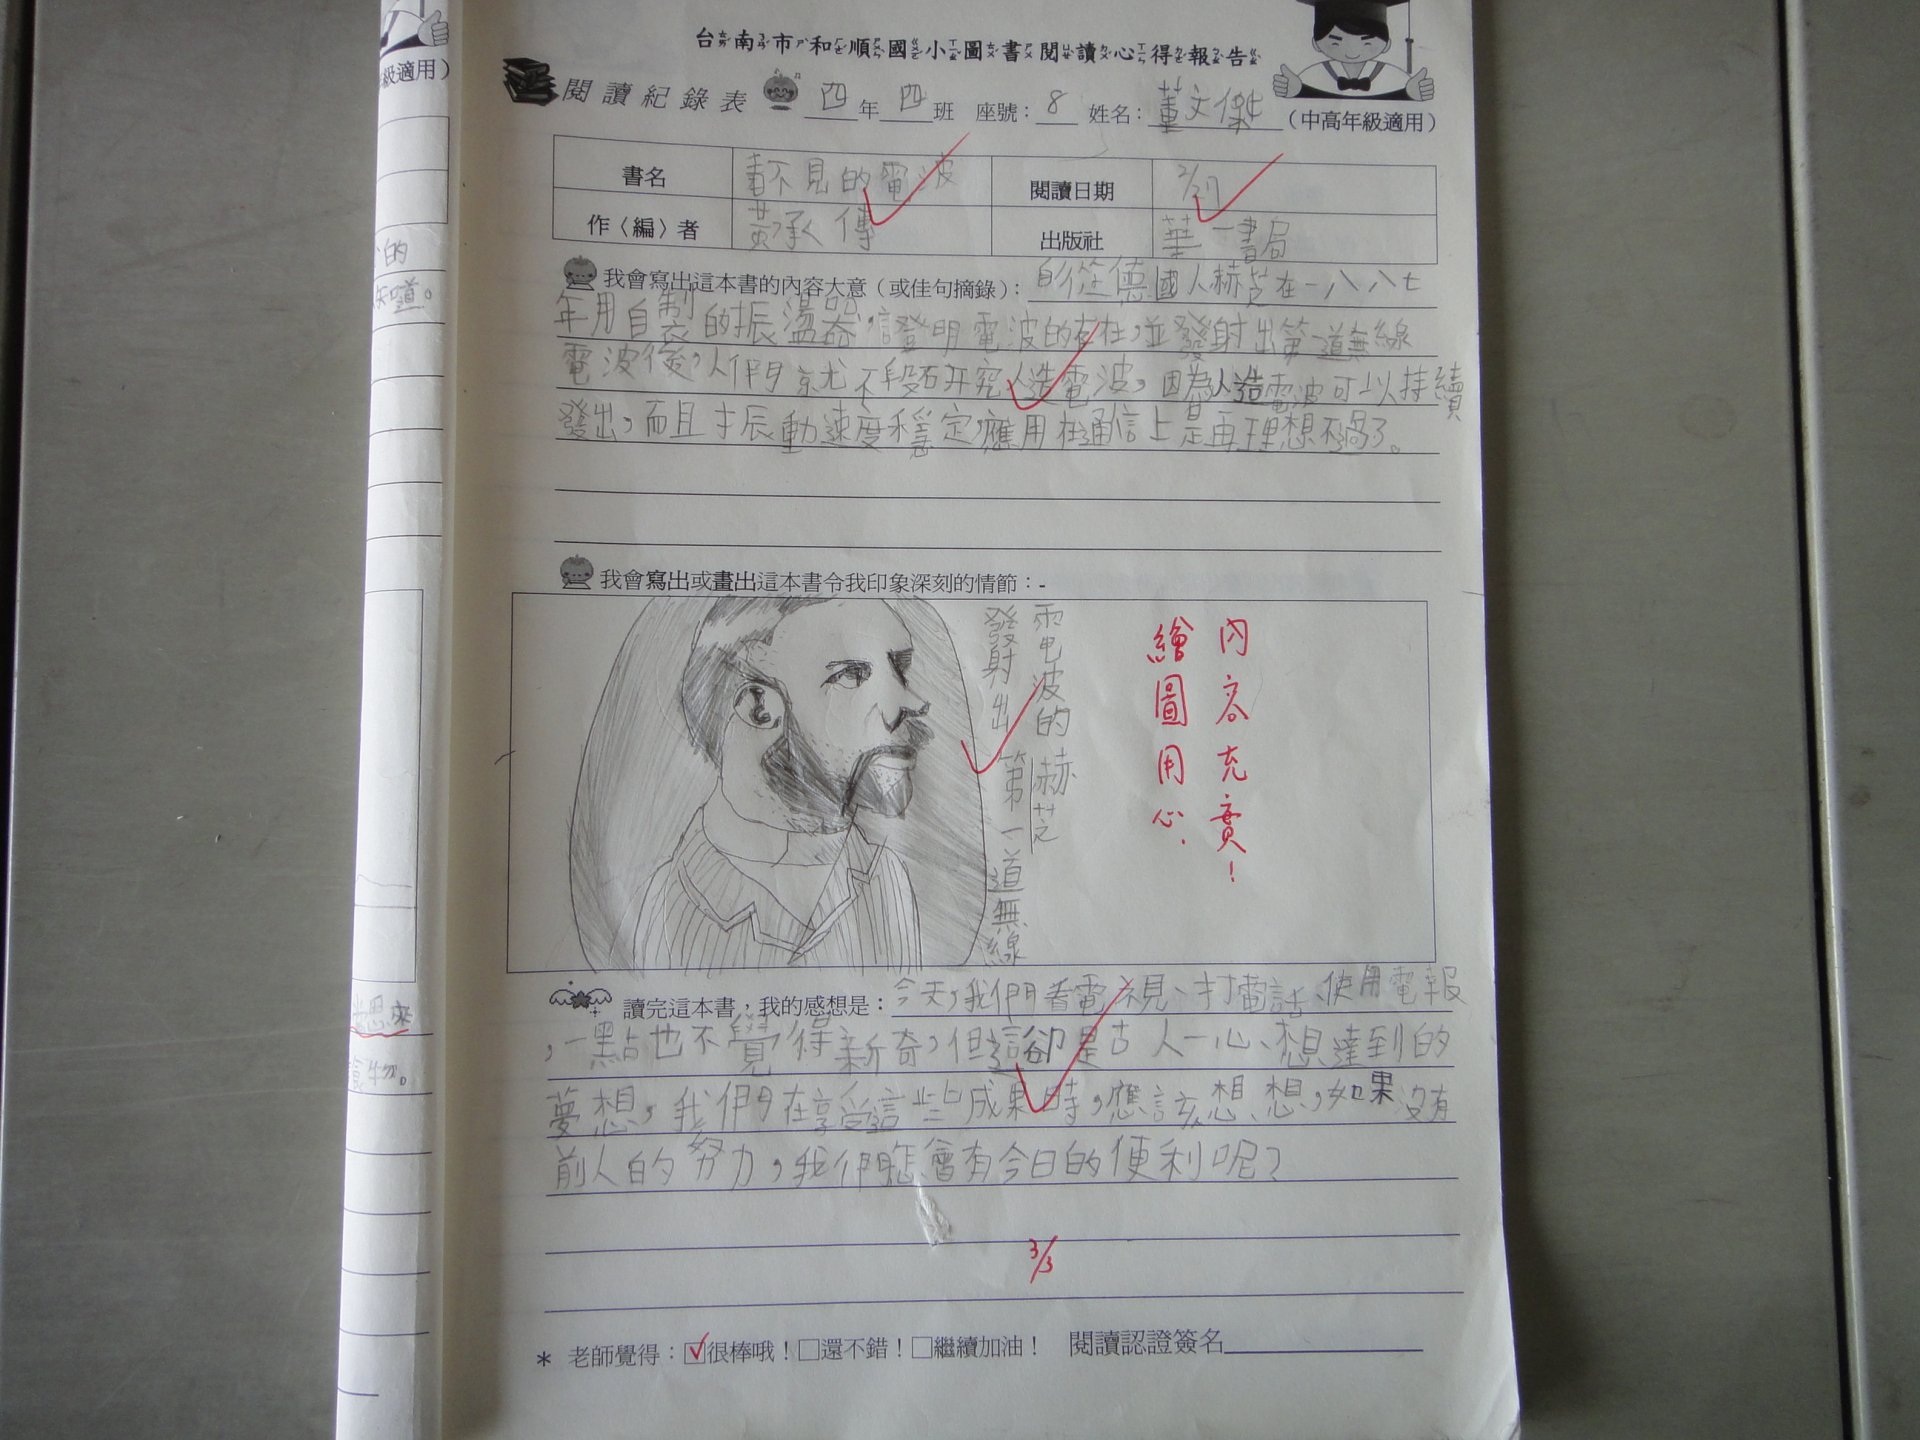 台南市和順國小圖書閱讀心得報告
級適用)
閱讀紀錄表 四年四班 座號:8 姓名:董文傑 (中高年級適用)
書名 看不見的電波 閱讀日期 2/27
作〈編〉者 黃承傳 出版社 華一書局
的
知道。
我會寫出這本書的內容大意(或佳句摘錄):自從德國人赫芝在一八八七
年用自製的振盪器,證明電波的存在,並發射出第一道無線
電波後,人們就不段研究人造電波,因為人造電波可以持續
發出,而且振動速度穩定,應用在通信上是再理想不過了。
我會寫出或畫出這本書令我印象深刻的情節:-
電波的赫芝
發射出第一道無線
內容充實!
繪圖用心.
思來
食物。
讀完這本書,我的感想是:今天,我們看電視、打電話、使用電報
,一點也不覺得新奇,但這卻是古人一心想達到的
夢想,我們在享受這些成果時,應該想想,如果沒有
前人的努力,我們怎會有今日的便利呢?
3/3
* 老師覺得:☑很棒哦!□還不錯!□繼續加油! 閱讀認證簽名